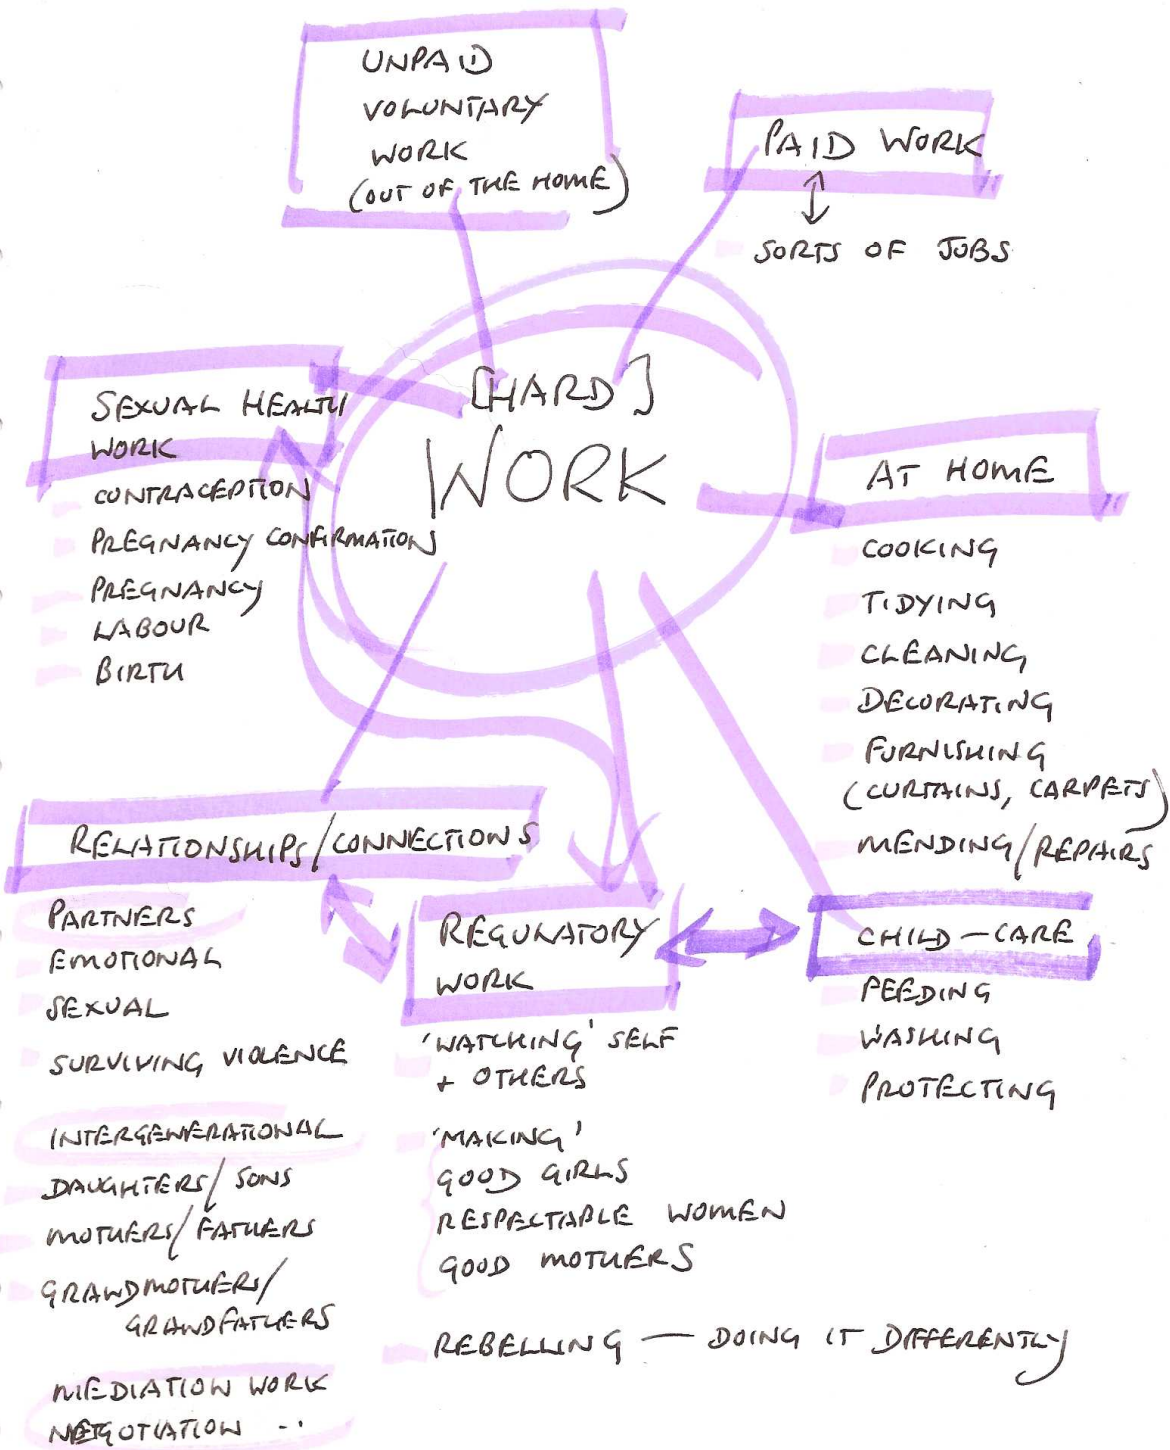 UNPAID
VOLUNTARY
WORK
(OUT OF THE HOME)
PAID WORK
SORTS OF JOBS
[HARD]
WORK
SEXUAL HEALTH
WORK
CONTRACEPTION
PREGNANCY CONFIRMATION
PREGNANCY
LABOUR
BIRTH
AT HOME
COOKING
TIDYING
CLEANING
DECORATING
FURNISHING
(CURTAINS, CARPETS)
MENDING/REPAIRS
RELATIONSHIPS/CONNECTIONS
PARTNERS
EMOTIONAL
SEXUAL
SURVIVING VIOLENCE
INTERGENERATIONAL
DAUGHTERS/SONS
MOTHERS/FATHERS
GRANDMOTHERS/
GRANDFATHERS
MEDIATION WORK
NEGOTIATION ..
REGULATORY
WORK
'WATCHING' SELF
+ OTHERS
'MAKING'
GOOD GIRLS
RESPECTABLE WOMEN
GOOD MOTHERS
REBELLING — DOING IT DIFFERENTLY
CHILD-CARE
FEEDING
WASHING
PROTECTING